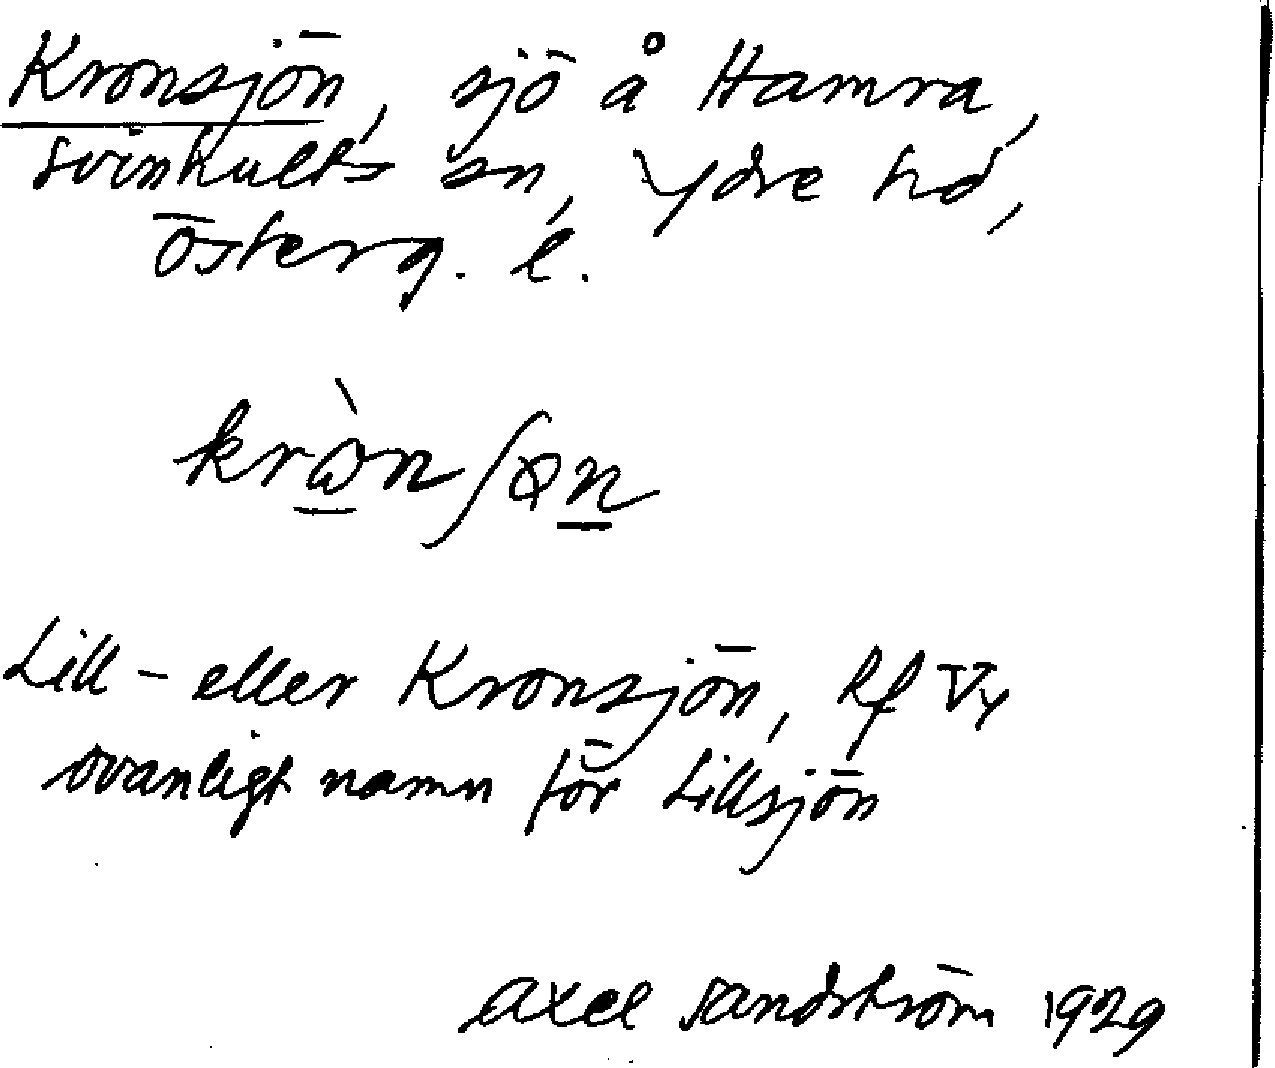 Kronsjön, sjö å Hamra,
Svinhults sn, Ydre hd,
Österg. l.
Lill- eller Kronsjön, Rf V,
ovanligt namn för Lillsjön
Axel Sandström 1929